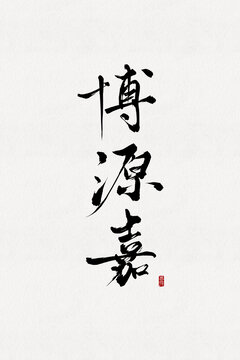 博源嘉